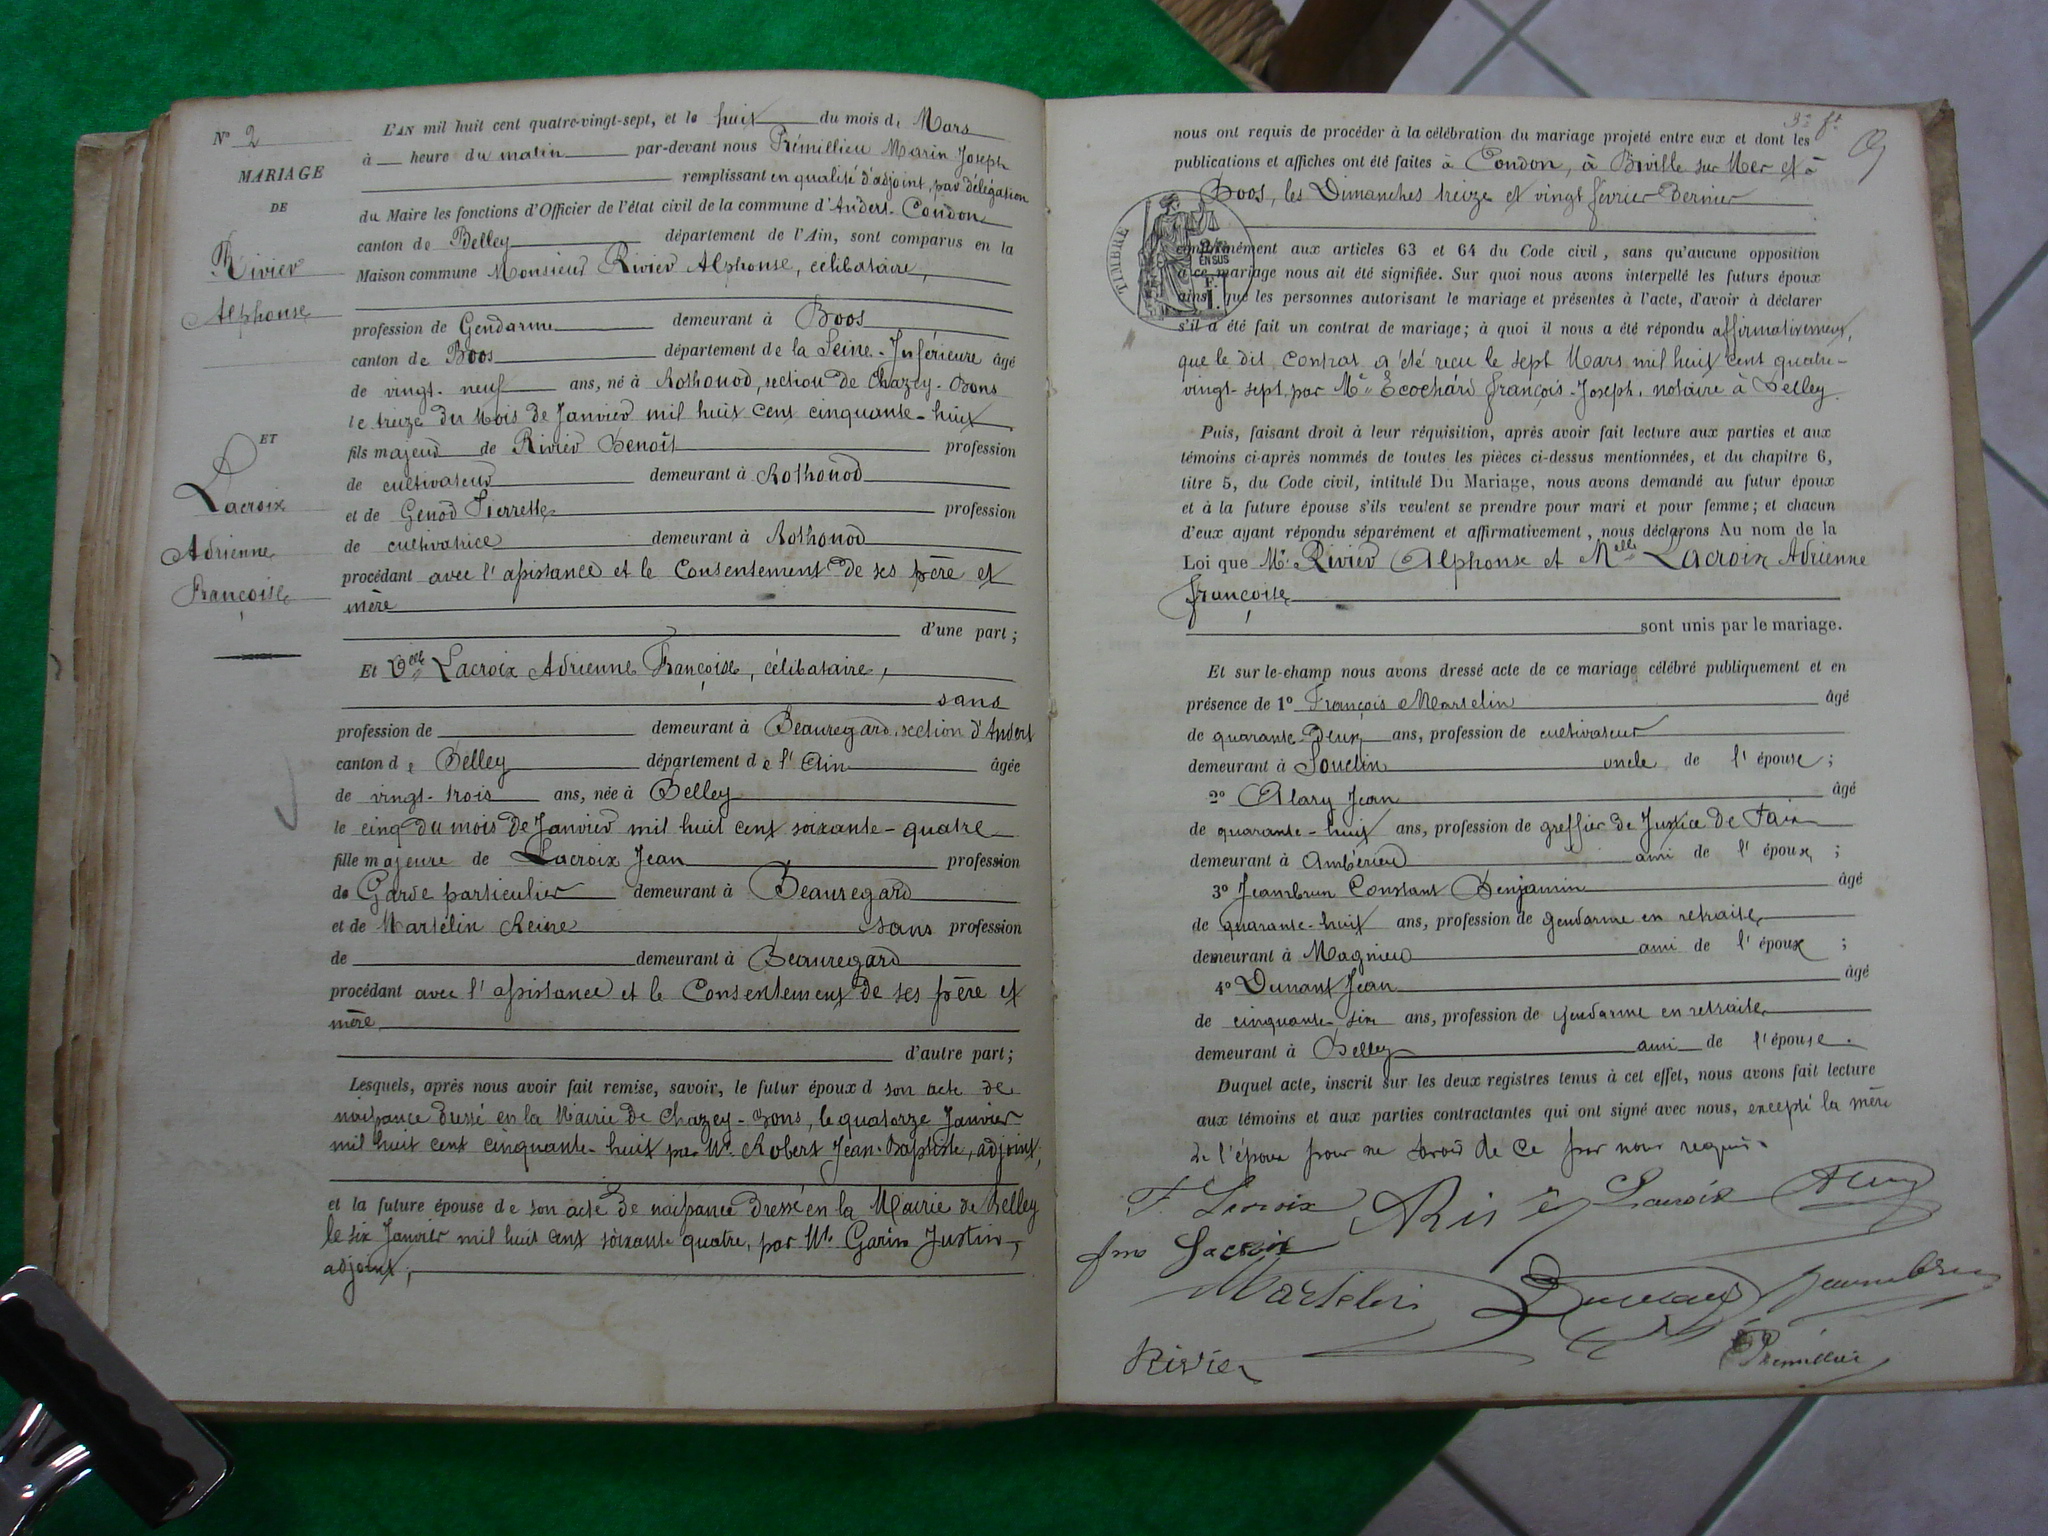 N° 2
MARIAGE
DE
Rivier
Alphonse
ET
Lacroix
Adrienne
Françoise
L'AN mil huit cent quatre-vingt-sept, et le huit du mois de Mars
à heure du matin par-devant nous Prémillieu Marin Joseph
remplissant en qualité d'adjoint, par délégation
du Maire les fonctions d'Officier de l'état civil de la commune d'Andert-Condon
canton de Belley département de l'Ain, sont comparus en la
Maison commune Monsieur Rivier Alphonse, célibataire,
profession de Gendarme demeurant à Boos
canton de Boos département de la Seine-Inférieure âgé
de vingt-neuf ans, né à Rothonod, section de Chazey-Bons
le treize du mois de Janvier mil huit cent cinquante-huit
fils majeur de Rivier Benoît profession
de cultivateur demeurant à Rothonod
et de Genod Pierrette profession
de cultivatrice demeurant à Rothonod
procédant avec l'assistance et le consentement de ses père et
mère
d'une part;
Et Delle Lacroix Adrienne Françoise, célibataire,
sans
profession de demeurant à Beauregard, section d'Andert
canton de Belley département de l'Ain âgée
de vingt-trois ans, née à Belley
le cinq du mois de Janvier mil huit cent soixante-quatre
fille majeure de Lacroix Jean profession
de Garde particulier demeurant à Beauregard
et de Martelin Reine sans profession
de demeurant à Beauregard
procédant avec l'assistance et le consentement de ses père et
mère
d'autre part;
Lesquels, après nous avoir fait remise, savoir, le futur époux d son acte de
naissance dressé en la Mairie de Chazey-Bons, le quatorze Janvier
mil huit cent cinquante-huit par Mr Robert Jean-Baptiste, adjoint,
et la future épouse de son acte de naissance dressé en la Mairie de Belley
le six Janvier mil huit cent soixante quatre, par Mr Garin Justin,
adjoint,
3e ft
nous ont requis de procéder à la célébration du mariage projeté entre eux et dont les
publications et affiches ont été faites à Condon, à Biville sur Mer et à
Boos, les Dimanches treize et vingt février dernier
TIMBRE
conformément aux articles 63 et 64 du Code civil, sans qu'aucune opposition
à ce mariage nous ait été signifiée. Sur quoi nous avons interpellé les futurs époux
ainsi que les personnes autorisant le mariage et présentes à l'acte, d'avoir à déclarer
s'il a été fait un contrat de mariage; à quoi il nous a été répondu affirmativement,
que le dit contrat a été reçu le sept Mars mil huit cent quatre-
vingt-sept par Me Ecochard françois-Joseph, notaire à Belley.
Puis, faisant droit à leur réquisition, après avoir fait lecture aux parties et aux
témoins ci-après nommés de toutes les pièces ci-dessus mentionnées, et du chapitre 6,
titre 5, du Code civil, intitulé Du Mariage, nous avons demandé au futur époux
et à la future épouse s'ils veulent se prendre pour mari et pour femme; et chacun
d'eux ayant répondu séparément et affirmativement, nous déclarons Au nom de la
Loi que Mr Rivier Alphonse et Melle Lacroix Adrienne
françoise
sont unis par le mariage.
Et sur-le-champ nous avons dressé acte de ce mariage célébré publiquement et en
présence de 1° François Martelin âgé
de quarante-deux ans, profession de cultivateur
demeurant à Souclin oncle de l'épouse;
2° Alary Jean âgé
de quarante-huit ans, profession de greffier de Justice de Paix
demeurant à Ambérieu ami de l'époux;
3° Jeambrun Constant Benjamin âgé
de quarante-huit ans, profession de gendarme en retraite,
demeurant à Magnieu ami de l'époux;
4° Dunant Jean âgé
de cinquante-six ans, profession de gendarme en retraite,
demeurant à Belley ami de l'épouse.
Duquel acte, inscrit sur les deux registres tenus à cet effet, nous avons fait lecture
aux témoins et aux parties contractantes qui ont signé avec nous, excepté la mère
de l'époux pour ne savoir de ce par nous requis.
F. Lacroix Rivier Lacroix Alary
fme Lacroix
Martelin Dunant Jeambrun
Rivier Prémillieu